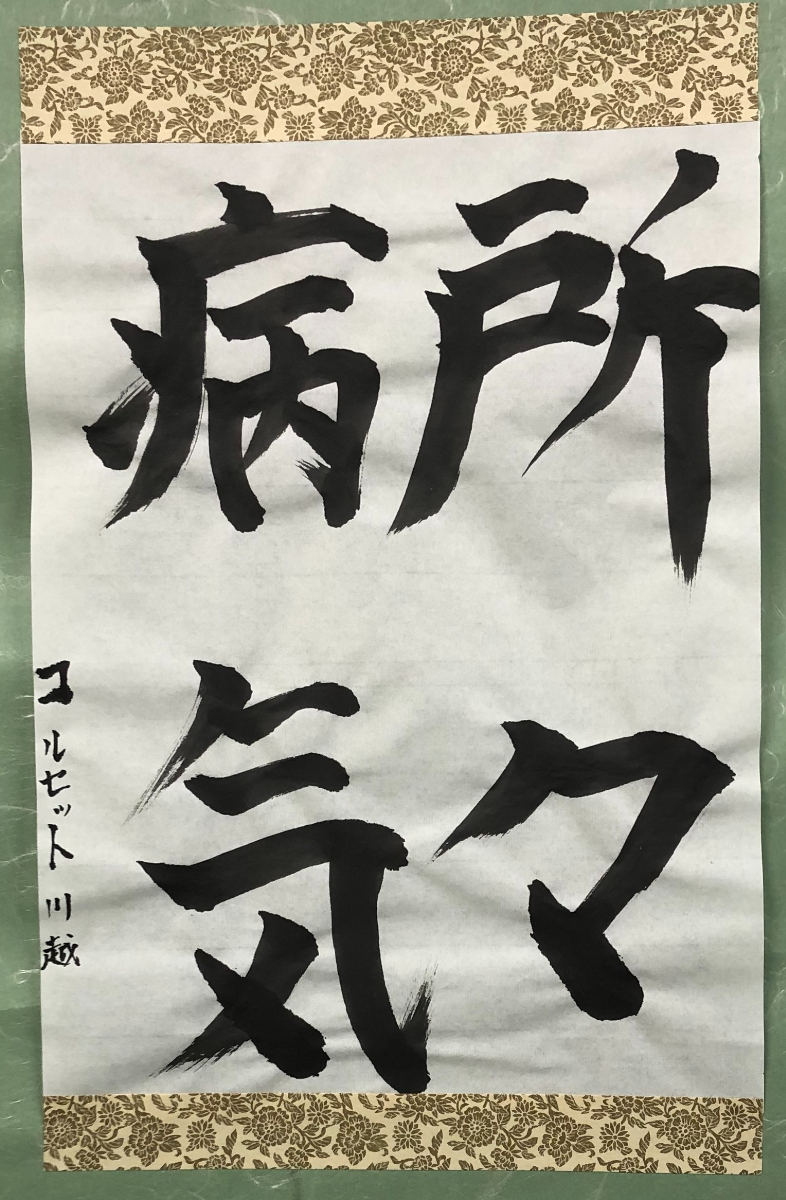 所々
病気
コルセット川越